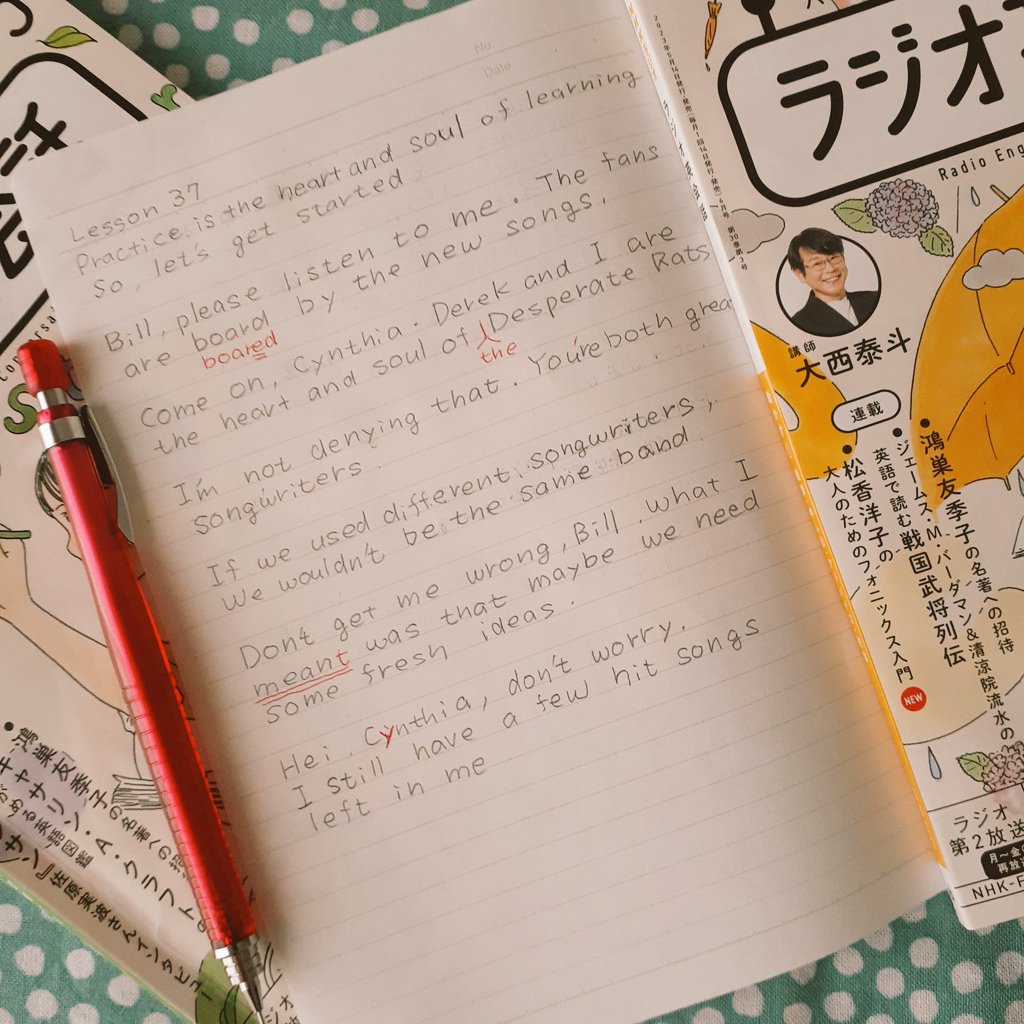 No.
Date
Lesson 37
Practice is the heart and soul of learning
so, let's get started
Bill, please listen to me. The fans
are board by the new songs.
boared
Come on, Cynthia. Derek and I are
the heart and soul of Desperate Rats
the
I'm not denying that. You're both great
songwriters.
If we used different songwriters,
We wouldn't be the same band.
Don't get me wrong, Bill. what I
meant was that maybe we need
some fresh ideas.
Hei, Cynthia, don't worry.
I still have a few hit songs
left in me.
ラジオ
Radio Eng
講師
大西泰斗
連載
●鴻巣友季子の名著への招待
●ジェームス・M・バーダマン&清涼院流水の
英語で読む戦国武将列伝
●松香洋子の
大人のためのフォニックス入門
NEW
ラジオ
第2放送
月〜金
再放
NHK-F
2023年5月14日発行・発売(毎月1回14日発行・発売)6月号
●鴻巣友季子の名著への招
キャサリン・A・クラフトの
める英語図鑑
サン』佐原実波さんインタビュー